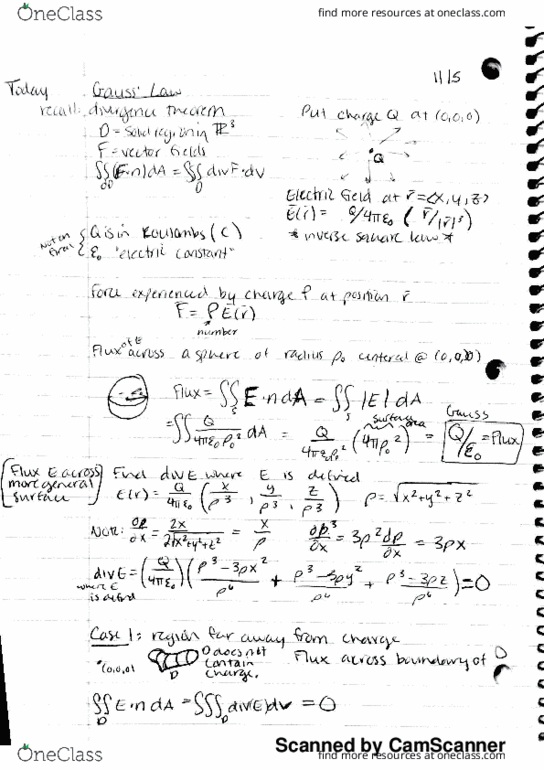 OneClass
find more resources at oneclass.com
11/5
Today Gauss' Law
recall: divergence theorem
D = solid region in ℝ³
F = vector fields
∬_∂D (F·n)dA = ∭_D divF·dv
Put charge Q at (0,0,0)
Q
Electric field at r̄ = <x, y, z>
Ē(r̄) = Q/4πε₀ ( r̄/|r̄|³)
* inverse square law *
Q is in Koulombs (C)
ε₀ "electric constant"
Force experienced by charge P at position r̄
F̄ = ρĒ(r̄)
number
Flux of E across a sphere of radius ρ₀ centeral @ (0,0,0)
Flux = ∬_S E·n dA = ∬_S |E| dA
= ∬ Q/4πε₀ρ₀² dA = Q/4πε₀ρ₀² (4πρ₀²) = Q/ε₀ = Flux
surface area
Gauss
[Flux E across more general surface]
Find div E where E is defined
E(r) = Q/4πε₀ (x/ρ³, y/ρ³, z/ρ³) ρ = √x²+y²+z²
NOR: ∂ρ/∂x = 2x/2√x²+y²+z² = x/ρ ∂ρ³/∂x = 3ρ² dρ/∂x = 3ρx
div E = (Q/4πε₀)(ρ³-3ρx²/ρ⁶ + ρ³-3ρy²/ρ⁶ + ρ³-3ρz/ρ⁶) = 0
where E is defined
Case 1: region far away from charge
(0,0,0)
D
D does not contain charge.
Flux across boundary of D
∬_D E·n dA = ∭_D div(E)dv = 0
Scanned by CamScanner
OneClass
find more resources at oneclass.com